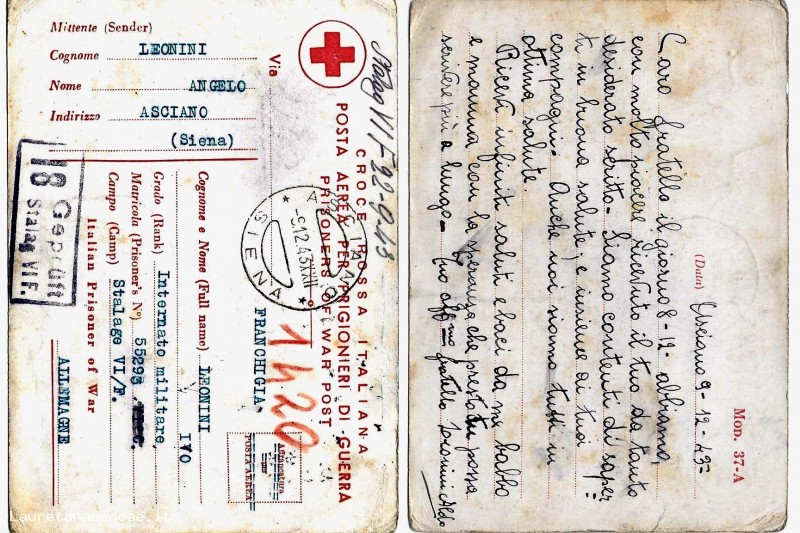 Mittente (Sender)
Cognome LEONINI
Nome ANGELO
Indirizzo ASCIANO
(Siena)
Via
CROCE ROSSA ITALIANA
POSTA AEREA PER PRIGIONIERI DI GUERRA
PRISONERS OF WAR POST
FRANCHIGIA
Stalag VI F 22-9-43
ASCIANO
9.12.43 XXII
SIENA
1420
Affrancatura
POSTA AEREA
Cognome e Nome (Full name) LEONINI
IVO
Grado (Rank) Internato militare
Matricola (Prisoner's N°) 55293
Campo (Camp) Stalage VI/F.
Italian Prisoner of War
ALLEMAGNE
18 Geprüft
Stalag VI F.
Lauretanasenese.it
Mod. 37-A
(Data) Asciano 9-12-43=
Caro fratello il giorno 8-12- abbiamo,
con molto piacere ricevuto il tuo da tanto
desiderato scritto- Siamo contenti di saper=
ti in buona salute, e insieme ai tuoi
compagni- Anche noi siamo tutti in
ottima salute.
Ricevi infiniti saluti e baci da me babbo
e mamma con la speranza che presto tu possa
scrivere più a lungo- Tuo aff.mo fratello Leonini Aldo